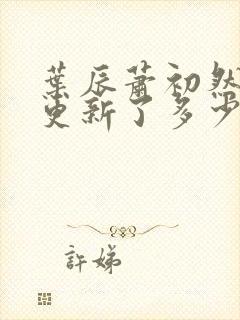 葉辰蕭初然
更新了多少
許娣